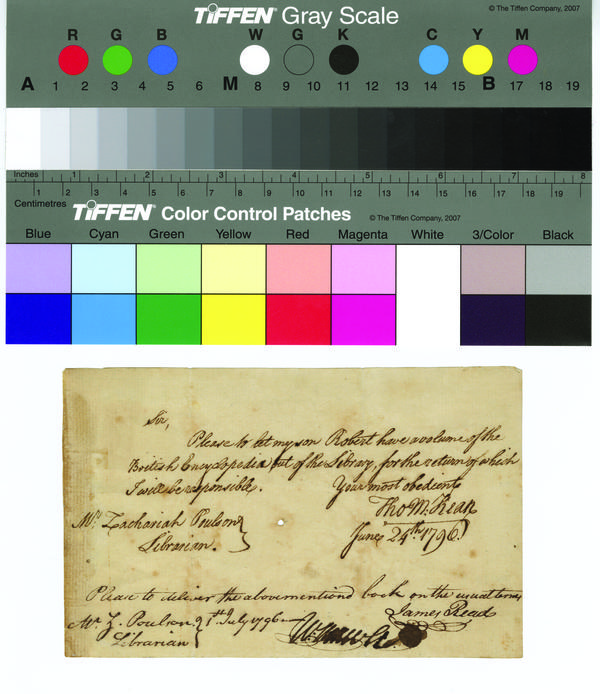 TIFFEN® Gray Scale
© The Tiffen Company, 2007
R G B W G K C Y M
A 1 2 3 4 5 6 M 8 9 10 11 12 13 14 15 B 17 18 19
Inches 1 2 3 4 5 6 7 8
1 2 3 4 5 6 7 8 9 10 11 12 13 14 15 16 17 18 19
Centimetres
TIFFEN® Color Control Patches
© The Tiffen Company, 2007
Blue Cyan Green Yellow Red Magenta White 3/Color Black
Sir,
Please to let my son Robert have a volume of the
British Encyclopedia out of the Library, for the return of which
I will be responsible. Your most obedient
Tho M. Kean
Mr. Zachariah Poulson
Librarian.
June 24th 1796.
Please to deliver the abovementiond book on the usual terms
James Read
Mr. Z. Poulson 1st July 1796
Librarian